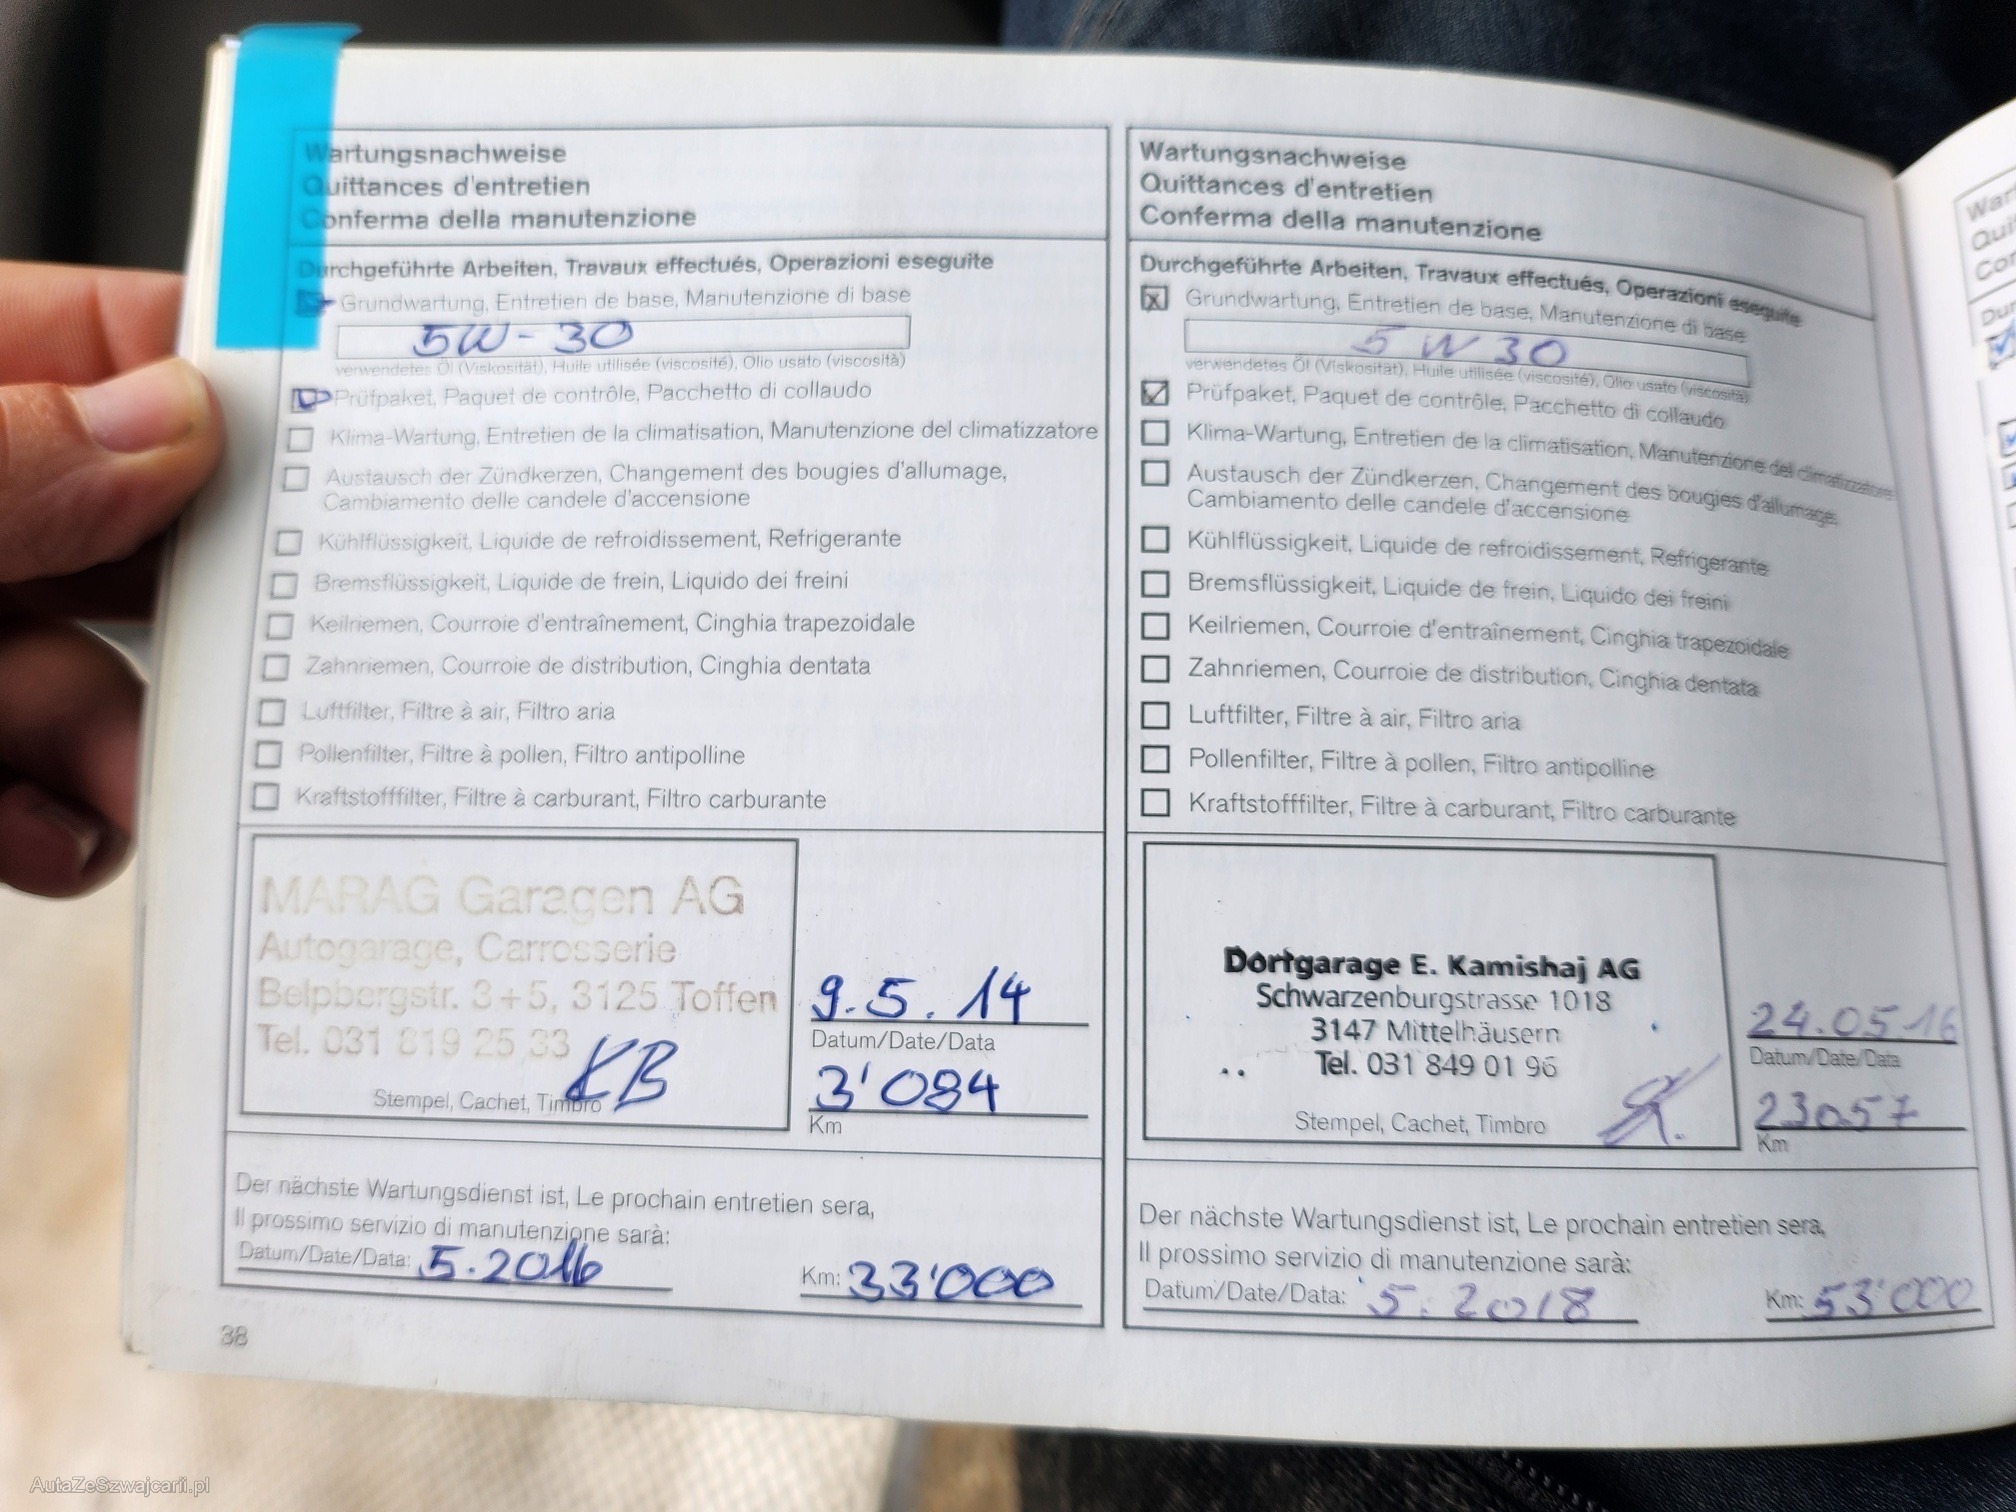 Wartungsnachweise
Quittances d'entretien
Conferma della manutenzione
Durchgeführte Arbeiten, Travaux effectués, Operazioni eseguite
Grundwartung, Entretien de base, Manutenzione di base
5W-30
verwendetes Öl (Viskosität), Huile utilisée (viscosité), Olio usato (viscosità)
Prüfpaket, Paquet de contrôle, Pacchetto di collaudo
Klima-Wartung, Entretien de la climatisation, Manutenzione del climatizzatore
Austausch der Zündkerzen, Changement des bougies d'allumage,
Cambiamento delle candele d'accensione
Kühlflüssigkeit, Liquide de refroidissement, Refrigerante
Bremsflüssigkeit, Liquide de frein, Liquido dei freini
Keilriemen, Courroie d'entraînement, Cinghia trapezoidale
Zahnriemen, Courroie de distribution, Cinghia dentata
Luftfilter, Filtre à air, Filtro aria
Pollenfilter, Filtre à pollen, Filtro antipolline
Kraftstofffilter, Filtre à carburant, Filtro carburante
MARAG Garagen AG
Autogarage, Carrosserie
Belpbergstr. 3+5, 3125 Toffen
Tel. 031 819 25 33
KB
Stempel, Cachet, Timbro
9.5.14
Datum/Date/Data
3'084
Km
Der nächste Wartungsdienst ist, Le prochain entretien sera,
Il prossimo servizio di manutenzione sarà:
Datum/Date/Data: 5.2016 Km: 33'000
38
Wartungsnachweise
Quittances d'entretien
Conferma della manutenzione
Durchgeführte Arbeiten, Travaux effectués, Operazioni eseguite
x Grundwartung, Entretien de base, Manutenzione di base
5 W 30
verwendetes Öl (Viskosität), Huile utilisée (viscosité), Olio usato (viscosità)
Prüfpaket, Paquet de contrôle, Pacchetto di collaudo
Klima-Wartung, Entretien de la climatisation, Manutenzione del climatizzatore
Austausch der Zündkerzen, Changement des bougies d'allumage,
Cambiamento delle candele d'accensione
Kühlflüssigkeit, Liquide de refroidissement, Refrigerante
Bremsflüssigkeit, Liquide de frein, Liquido dei freini
Keilriemen, Courroie d'entraînement, Cinghia trapezoidale
Zahnriemen, Courroie de distribution, Cinghia dentata
Luftfilter, Filtre à air, Filtro aria
Pollenfilter, Filtre à pollen, Filtro antipolline
Kraftstofffilter, Filtre à carburant, Filtro carburante
Dorfgarage E. Kamishaj AG
Schwarzenburgstrasse 1018
3147 Mittelhäusern
Tel. 031 849 01 96
Stempel, Cachet, Timbro
24.05.16
Datum/Date/Data
23057
Km
Der nächste Wartungsdienst ist, Le prochain entretien sera,
Il prossimo servizio di manutenzione sarà:
Datum/Date/Data: 5.2018 Km: 53'000
AutaZeSzwajcarii.pl